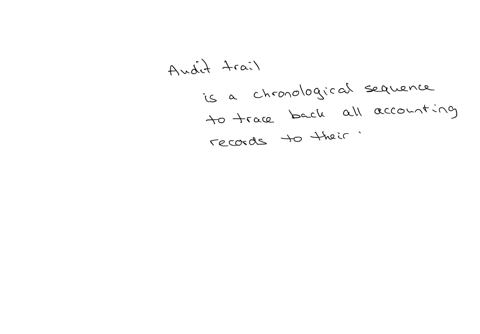 Audit trail
is a chronological sequence
to trace back all accounting
records to their